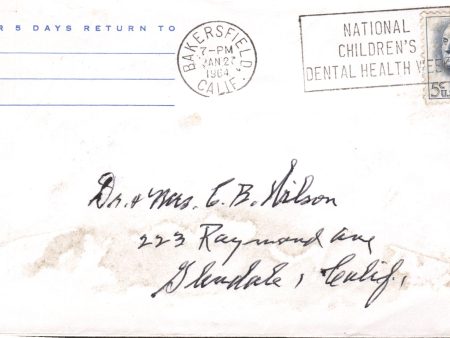 R 5 DAYS RETURN TO
BAKERSFIELD,
7-PM
JAN 2
1964
CALIF.
NATIONAL
CHILDREN'S
DENTAL HEALTH WEE
5¢
U.
Dr. & Mrs. E. B. Wilson
223 Raymond Ave
Glendale, Calif.,